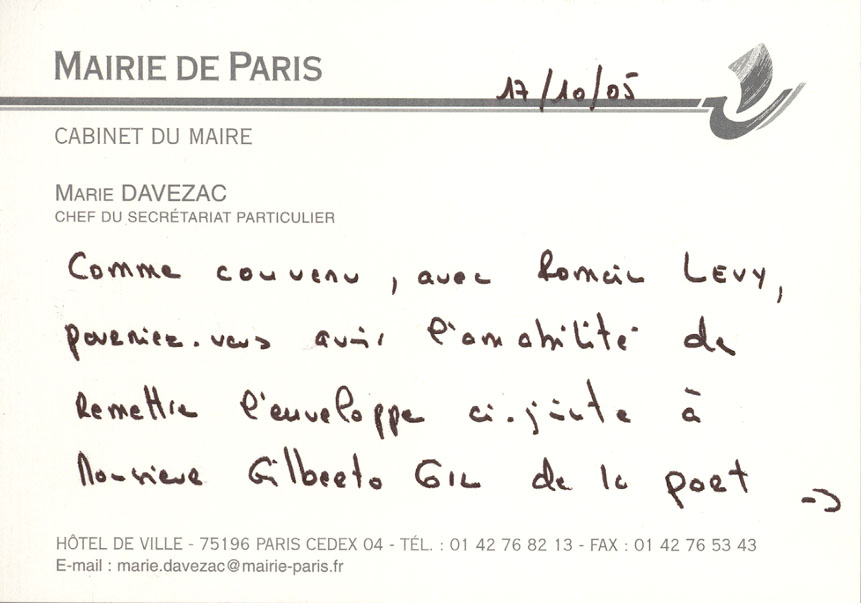 MAIRIE DE PARIS
17/10/05
CABINET DU MAIRE
MARIE DAVEZAC
CHEF DU SECRÉTARIAT PARTICULIER
Comme convenu, avec Romain LEVY,
pourriez-vous avoir l'amabilité de
Remettre l'enveloppe ci-jointe à
Monsieur Gilberto GIL de la part →
HÔTEL DE VILLE - 75196 PARIS CEDEX 04 - TÉL. : 01 42 76 82 13 - FAX : 01 42 76 53 43
E-mail : marie.davezac@mairie-paris.fr